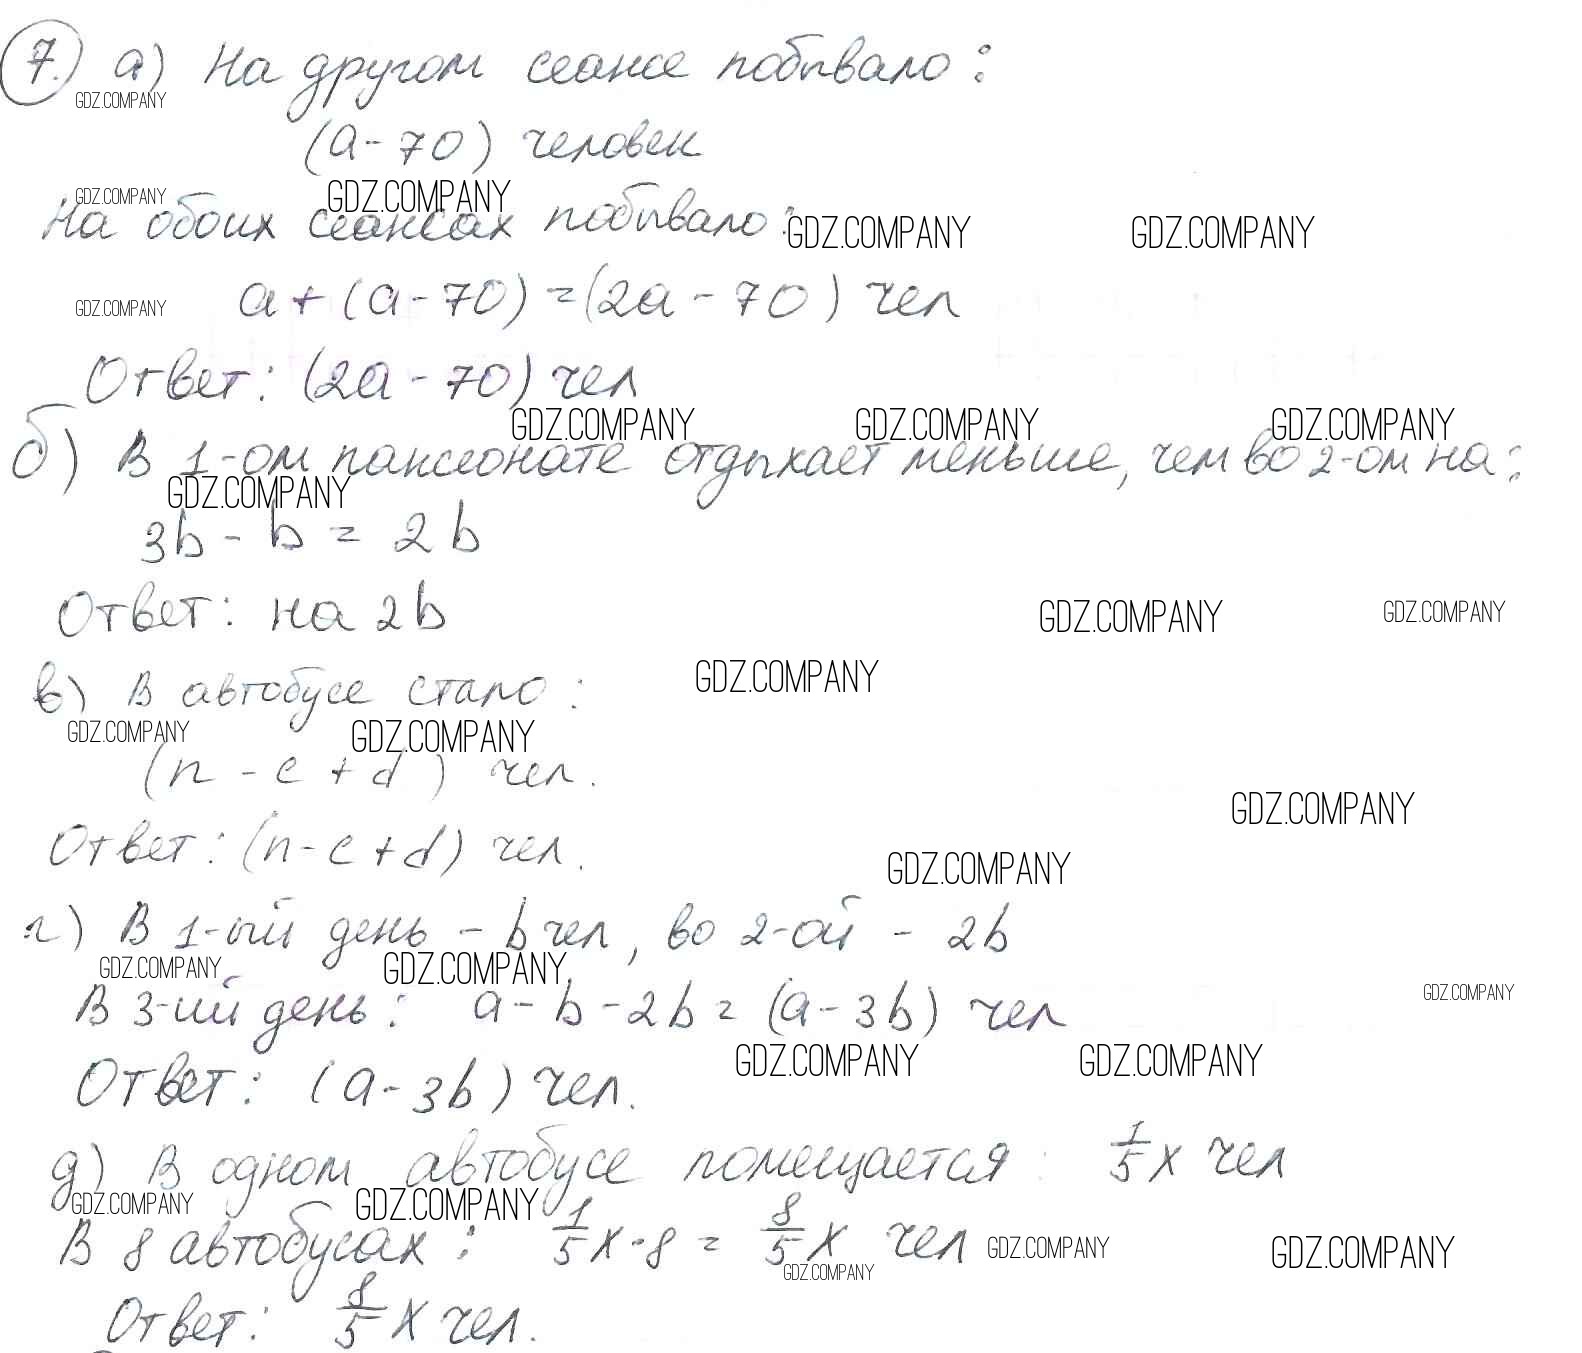 7. а) На другом сеансе побывало:
GDZ.COMPANY
(a - 70) человек
GDZ.COMPANY GDZ.COMPANY
На обоих сеансах побывало:
GDZ.COMPANY GDZ.COMPANY
GDZ.COMPANY
a + (a - 70) = (2a - 70) чел
Ответ: (2a - 70) чел
GDZ.COMPANY GDZ.COMPANY GDZ.COMPANY
б) В 1-ом пансионате отдыхает меньше, чем во 2-ом на:
GDZ.COMPANY
3b - b = 2b
Ответ: на 2b
GDZ.COMPANY GDZ.COMPANY
GDZ.COMPANY
в) В автобусе стало:
GDZ.COMPANY GDZ.COMPANY
(n - c + d) чел.
GDZ.COMPANY
Ответ: (n - c + d) чел.
GDZ.COMPANY
г) В 1-ый день - b чел, во 2-ой - 2b
GDZ.COMPANY GDZ.COMPANY
GDZ.COMPANY
В 3-ий день: a - b - 2b = (a - 3b) чел
GDZ.COMPANY GDZ.COMPANY
Ответ: (a - 3b) чел.
д) В одном автобусе помещается: 1/5 x чел
GDZ.COMPANY GDZ.COMPANY
В 8 автобусах: 1/5 x · 8 = 8/5 x чел
GDZ.COMPANY GDZ.COMPANY
GDZ.COMPANY
Ответ: 8/5 x чел.